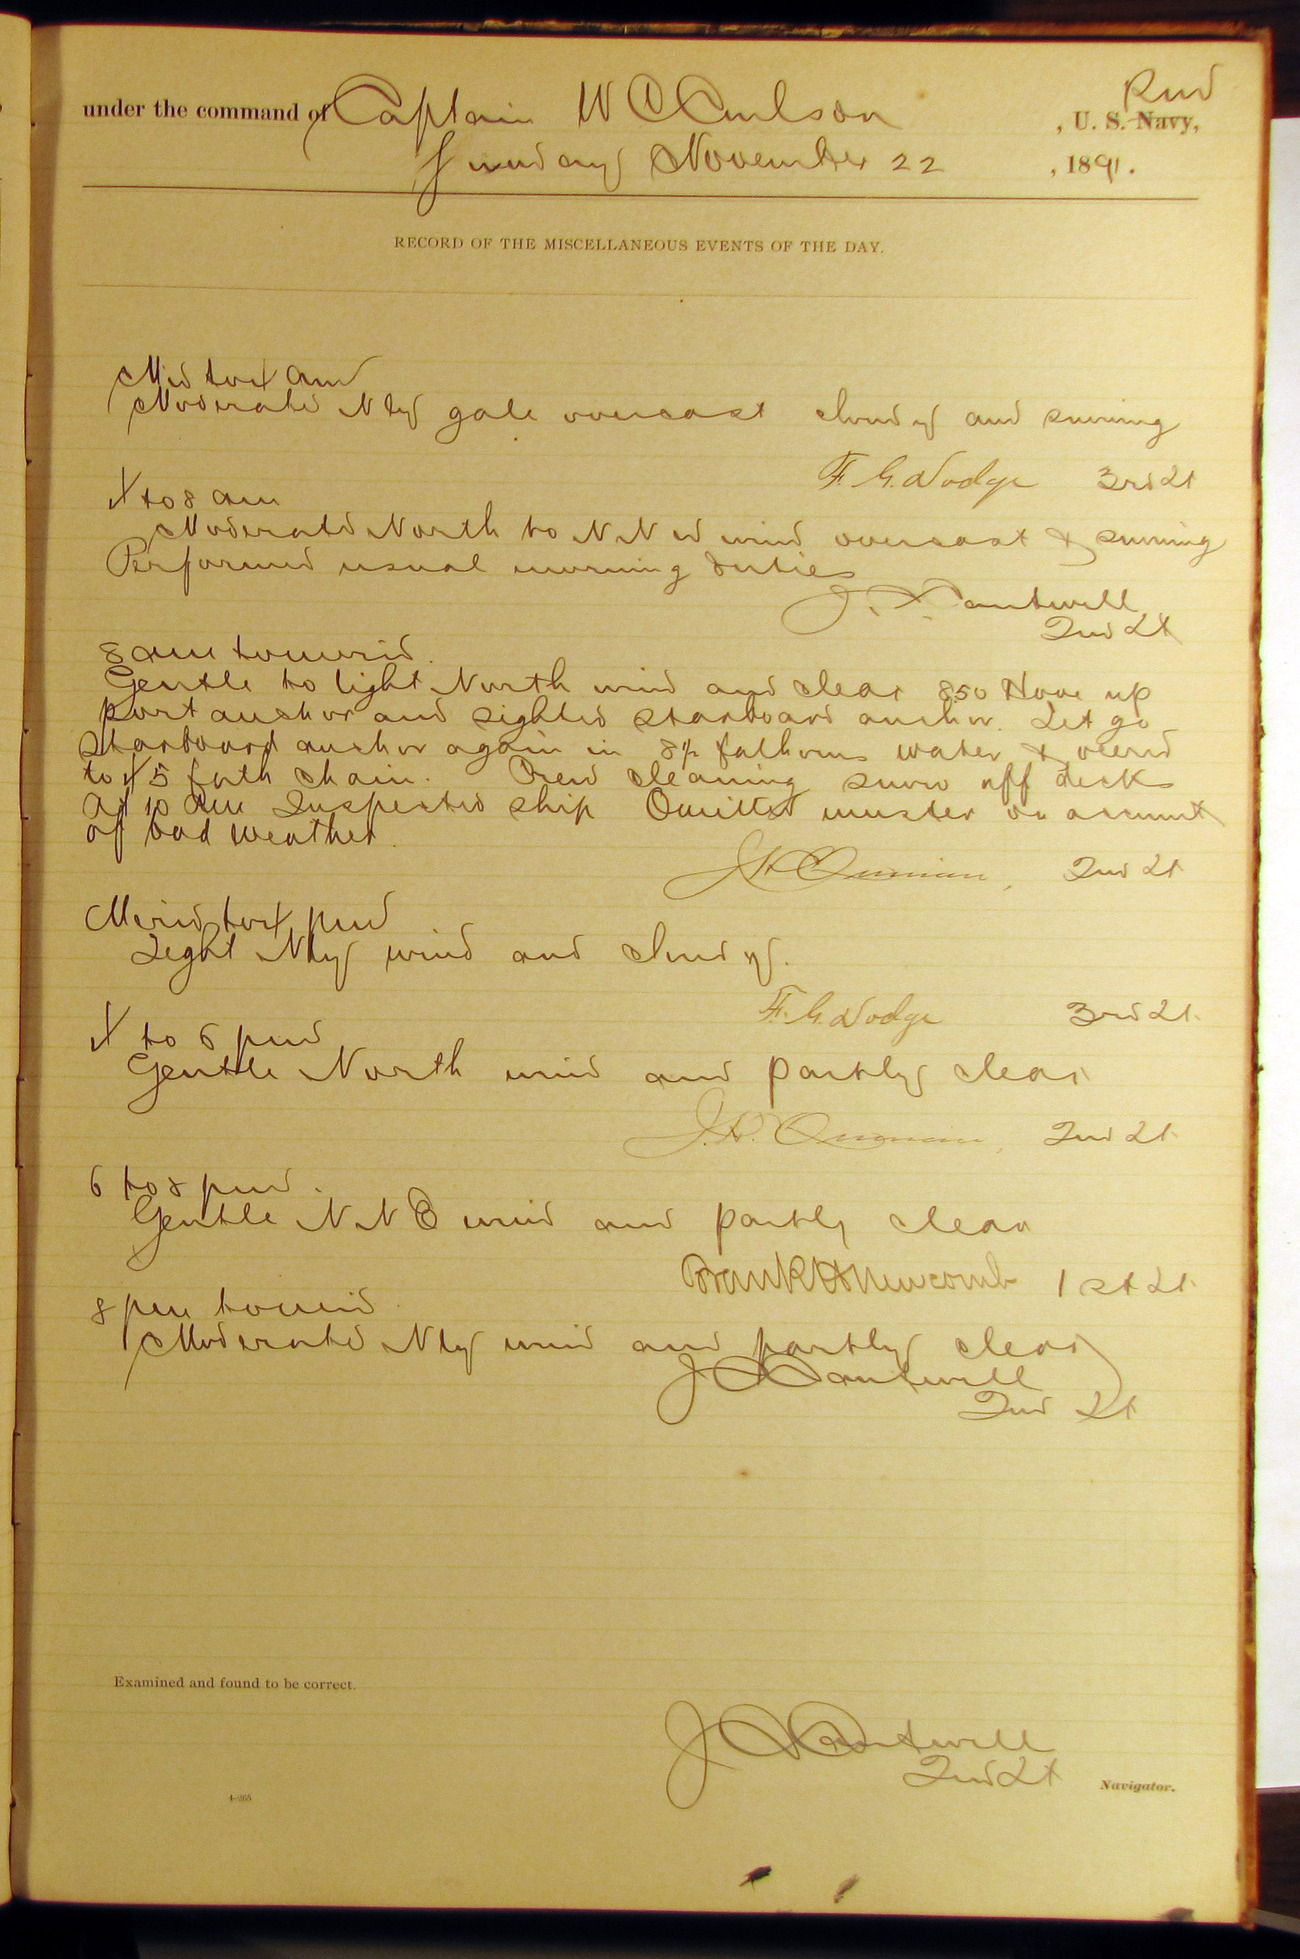 under the command of Captain W C Coulson , U. S. Navy, Rm
Sunday November 22 , 1891.
RECORD OF THE MISCELLANEOUS EVENTS OF THE DAY.
Mid to 4 am
Moderate Nly gale overcast cloudy and snowing
F. G. Dodge 3rd Lt
4 to 8 am
Moderate North to NNW wind overcast & snowing
Performed usual morning duties
J. C. Cantwell
2nd Lt
8 am to merid.
Gentle to light North wind and clear 8.50 Hove up
port anchor and sighted starboard anchor. Let go
starboard anchor again in 8½ fathoms water & veered
to 45 fath chain. Crew cleaning snow off decks
At 10 am Inspected ship Omitted muster on account
of bad weather.
J H Quinan, 2nd Lt
Merid to 4 pm
Light Nly wind and cloudy.
F. G. Dodge 3rd Lt.
4 to 6 pm
Gentle North wind and partly clear
J. H. Quinan, 2nd Lt
6 to 8 pm.
Gentle NNE wind and partly clear
Frank H Newcomb 1st Lt.
8 pm to mid.
Moderate Nly wind and partly clear
J C Cantwell
2nd Lt
Examined and found to be correct.
J C Cantwell
2nd Lt Navigator.
4-265